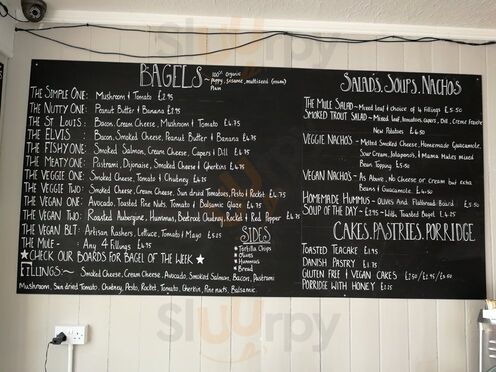 BAGELS
~ 100% organic
poppy, sesame, multiseed (brown)
Plain
THE SIMPLE ONE: Mushroom & Tomato £2.95
THE NUTTY ONE: Peanut Butter & Banana £3.95
THE ST LOUIS: Bacon, Cream Cheese, Mushroom & Tomato £4.75
THE ELVIS : Bacon, Smoked Cheese, Peanut Butter & Banana £4.95
THE FISHY ONE: Smoked Salmon, Cream Cheese, Capers & Dill £4.95
THE MEATY ONE: Pastrami, Dijonaise, Smoked Cheese & Gherkins £4.95
THE VEGGIE ONE: Smoked Cheese, Tomato & Chutney £4.25
THE VEGGIE TWO: Smoked Cheese, Cream Cheese, Sun dried Tomatoes, Pesto & Rocket £4.75
THE VEGAN ONE: Avocado, Toasted Pine Nuts, Tomato & Balsamic Glaze £4.95
THE VEGAN TWO: Roasted Aubergine, Hummus, Beetroot Chutney, Rocket & Red Pepper £4.95
THE VEGAN BLT: Artisan Rashers, Lettuce, Tomato & Mayo £5.25
THE MULE - : Any 4 Fillings £4.95
★CHECK OUR BOARDS FOR BAGEL OF THE WEEK ★
FILLINGS:~ Smoked Cheese, Cream Cheese, Avocado, Smoked Salmon, Bacon, Pastrami
Mushroom, Sun dried Tomato, Chutney, Pesto, Rocket, Tomato, Gherkin, Pine nuts, Balsamic.
SIDES
* Tortilla Chips
* Olives
* Hummus
* Bread
SALADS, SOUPS, NACHOS
THE MULE SALAD ~ Mixed leaf & choice of 4 fillings £5.50
SMOKED TROUT SALAD ~ Mixed leaf, tomatoes, capers, Dill, Crème fraiche
New Potatoes £6.50
VEGGIE NACHO'S - Melted Smoked Cheese, Homemade Guacamole,
Sour Cream, Jalapenos, & Mama Makes mixed
Bean Topping £5.50
VEGAN NACHO'S - As Above, No Cheese or cream but extra
Beans & Guacamole £5.50
HOMEMADE HUMMUS - Olives And Flatbread Board £5.50
SOUP OF THE DAY - £3.95 - With Toasted Bagel £4.25
CAKES, PASTRIES, PORRIDGE
TOASTED TEACAKE £1.95
DANISH PASTRY £1.75
GLUTEN FREE & VEGAN CAKES £2.50/£2.95/£3.50
PORRIDGE WITH HONEY £2.25
sluurpy
sluurpy